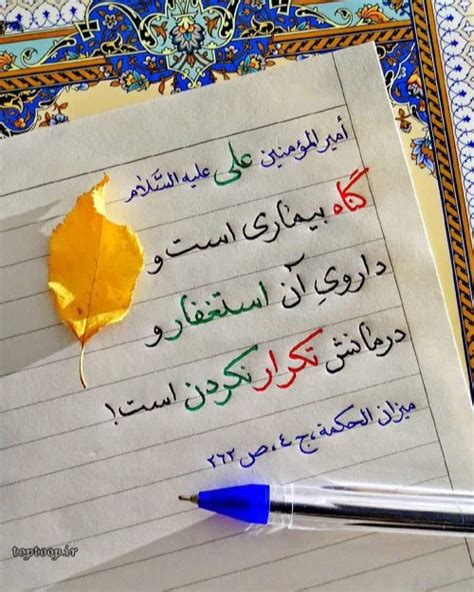 أمیرالمؤمنین علی علیه السَّلام
گناه بیماری است و
داروی آن استغفار و
درمانش تکرار نکردن است!
میزان الحکمة، ج ٤، ص ٢٦٢
toptoop.ir